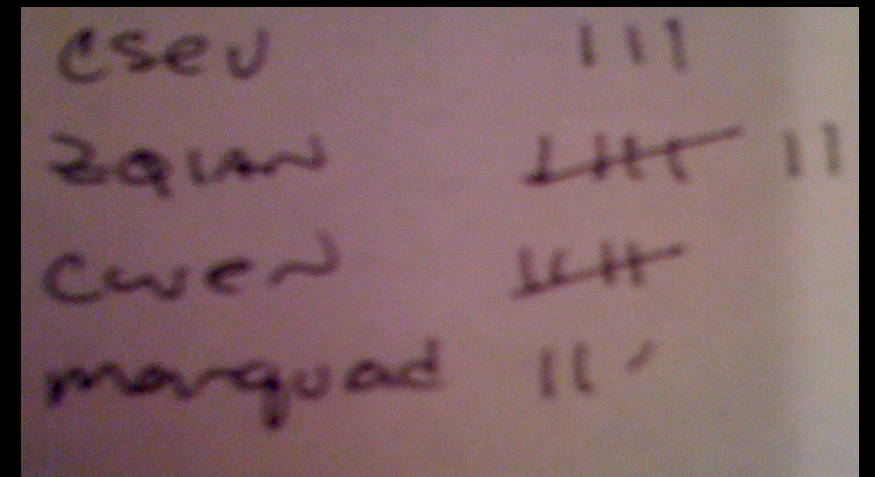 csev III
zqian IIII II
cwen IIII
marquad III